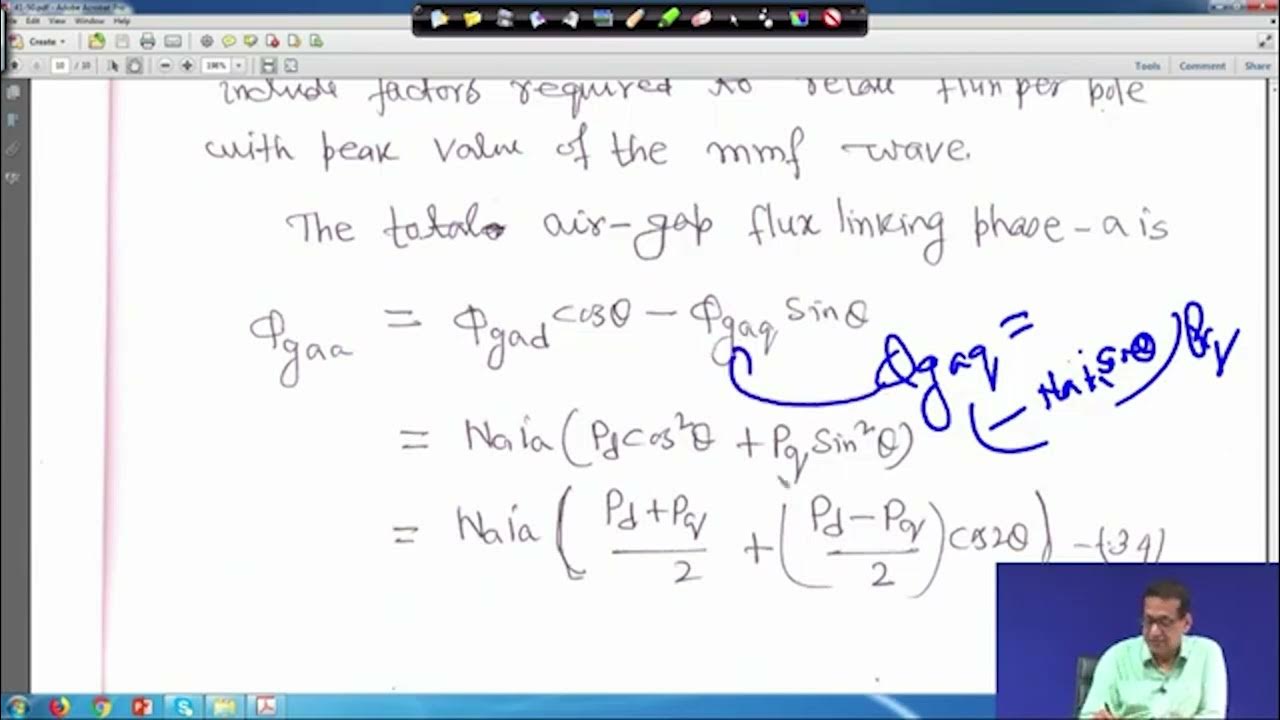 41-50.pdf - Adobe Acrobat Pro
Edit View Window Help
Create
10 / 10 196%
Tools Comment Share
include factors required to relate flux per pole
with peak value of the mmf wave.
The total air-gap flux linking phase-a is
Φgaa = Φgad cosθ - Φgaq sinθ
Φgaq = (-Naia sinθ) Pq
= Naia (Pd cos²θ + Pq sin²θ)
= Naia ( (Pd + Pq)/2 + ((Pd - Pq)/2) cos2θ ) - (34)